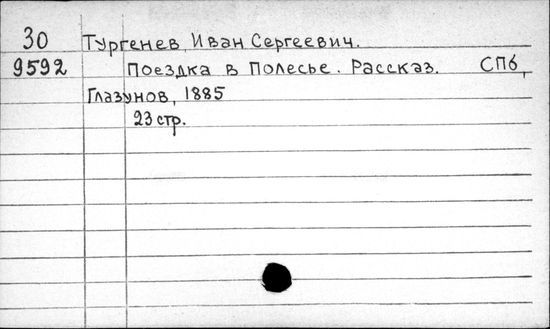 30 Тургенев, Иван Сергеевич.
9592 Поездка в Полесье. Рассказ. СПб,
Глазунов, 1885
23 стр.